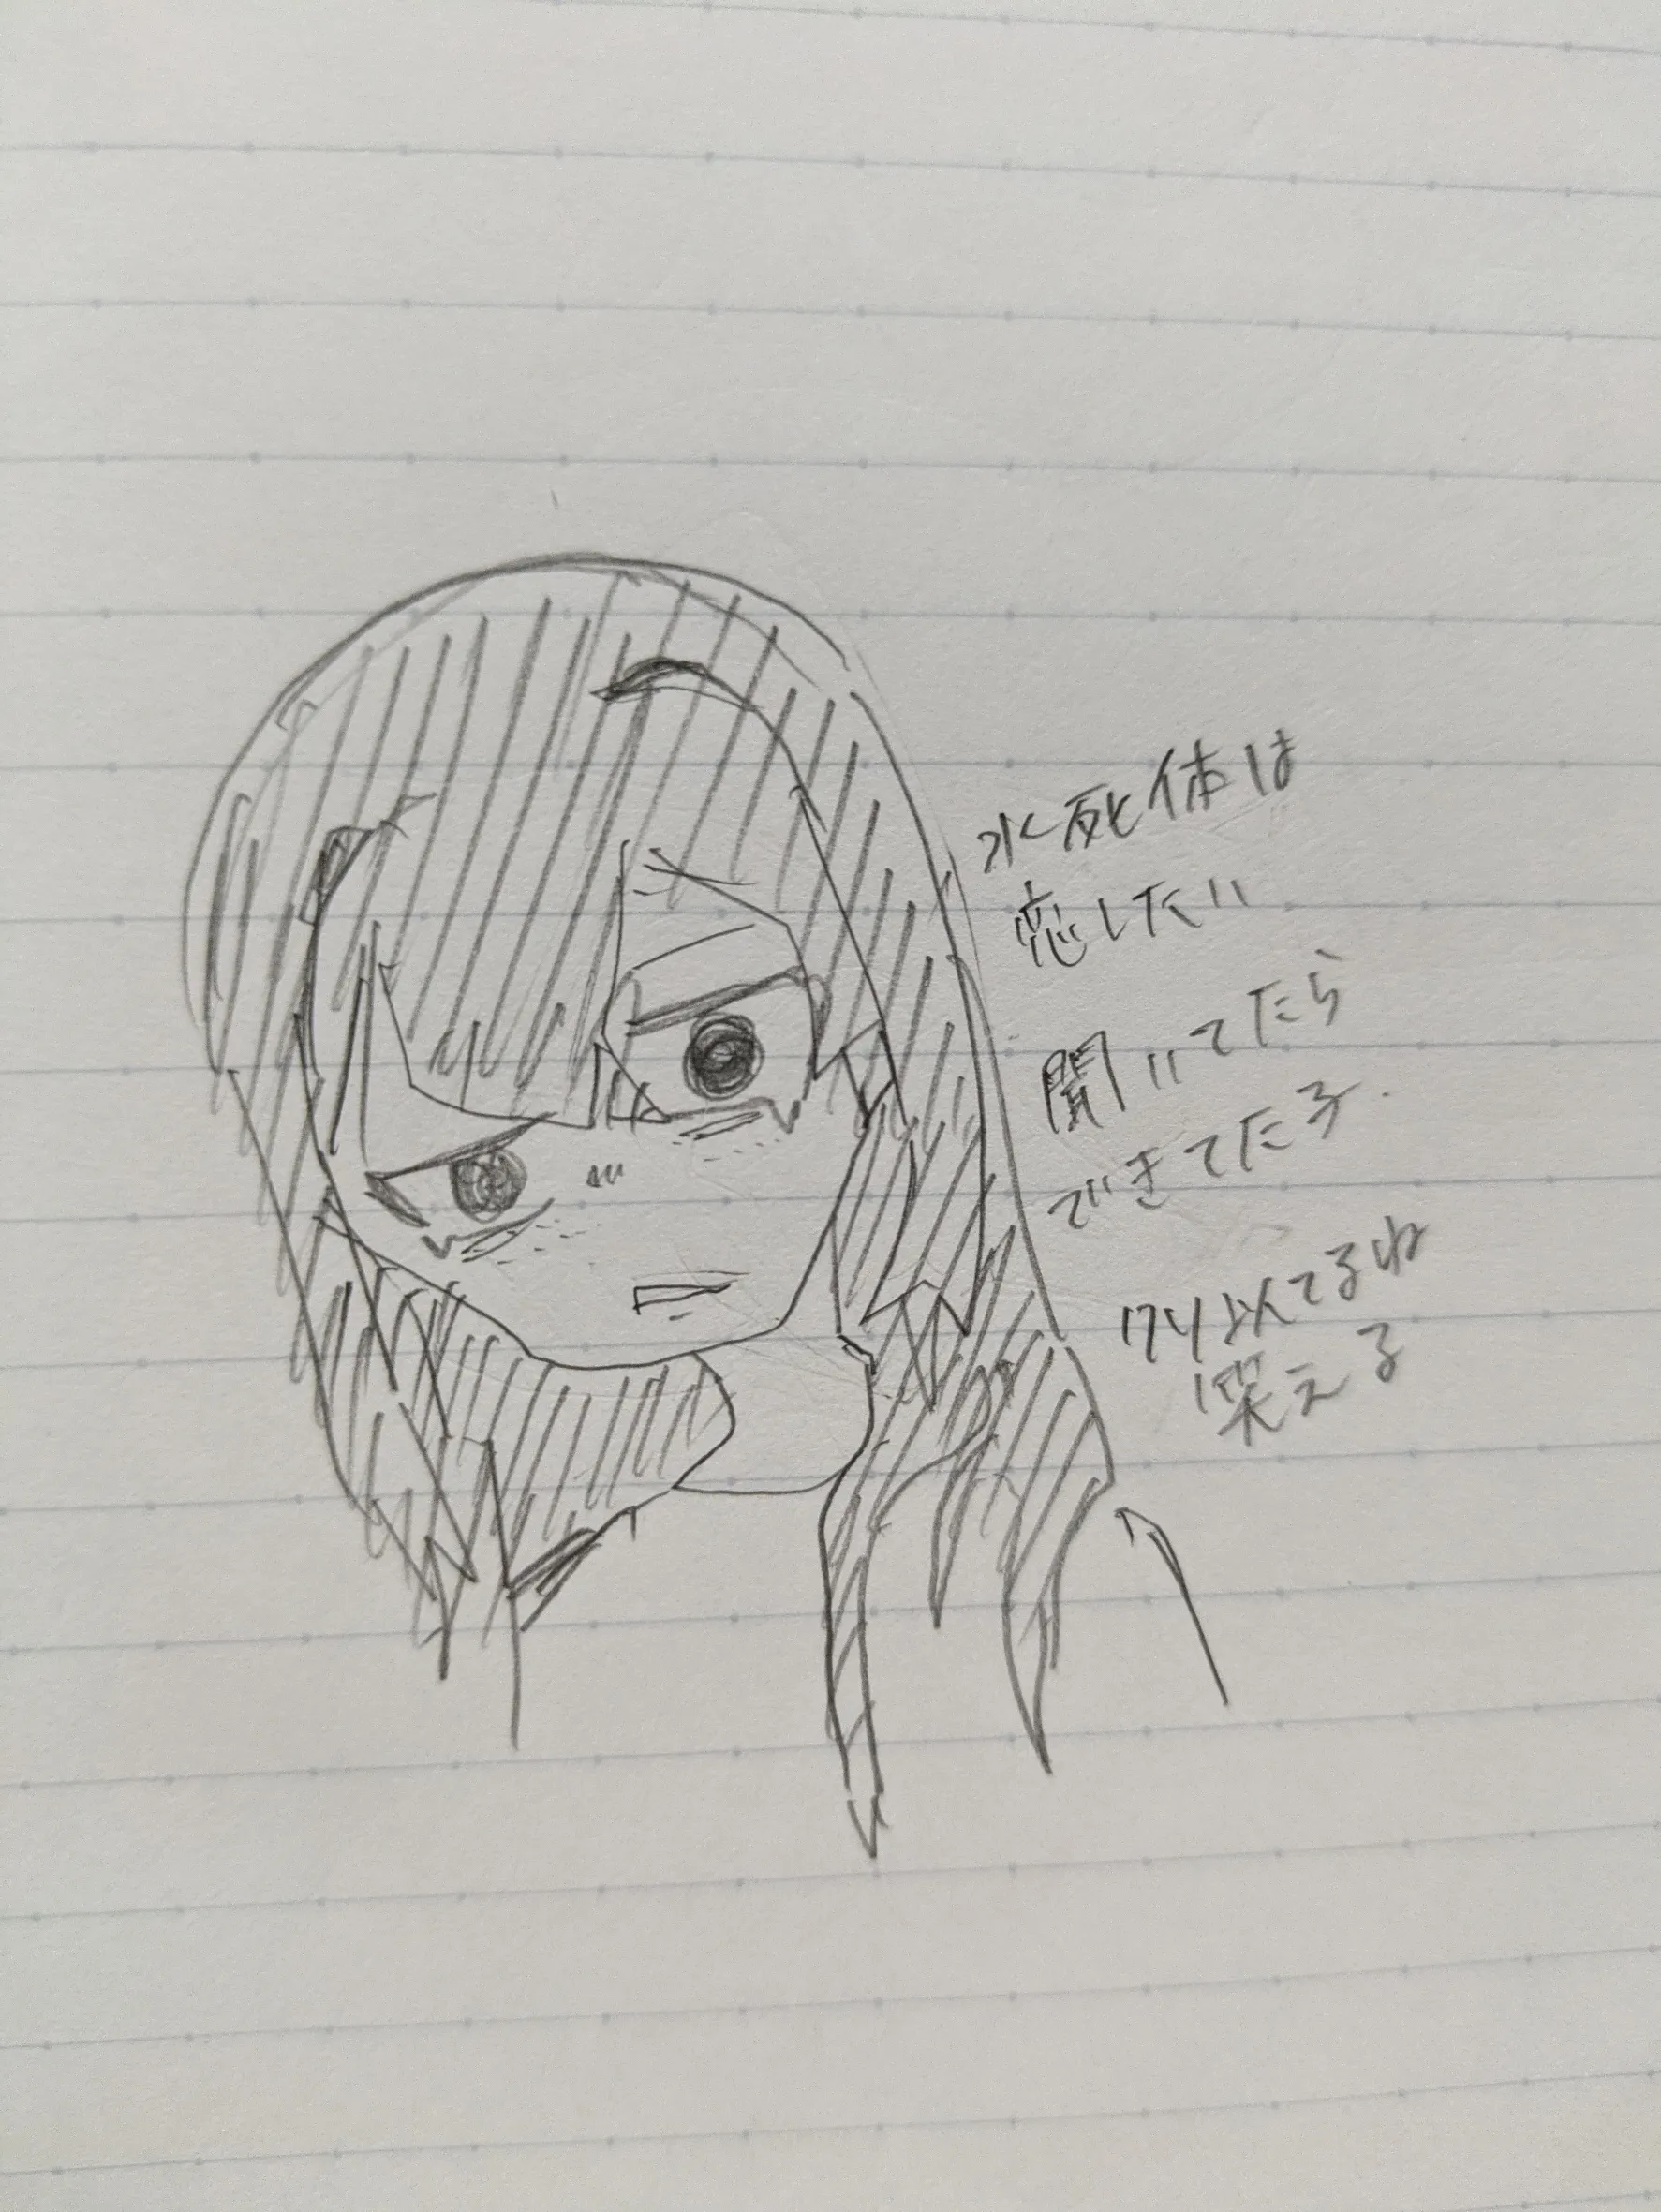 水死体は
恋したい
聞いてたら
できてた子.
似てるね
笑える